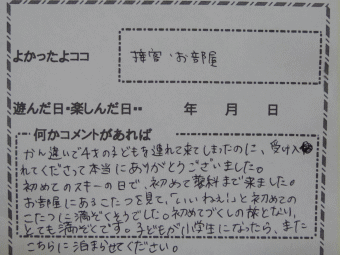 よかったよココ
接客・お部屋
遊んだ日・楽しんだ日・・ 年 月 日
何かコメントがあれば
かん違いで4才の子どもを連れて来てしまったのに、受け入
れてくださって本当にありがとうございました。
初めてのスキーの日で、初めて蓼科まで来ました。
お部屋にあるこたつを見て、"いいねぇ!"と初めての
こたつに満ぞくそうでした。初めてづくしの旅となり、
とても満ぞくです。子どもが小学生になったら、また
こちらに泊まらせてください。